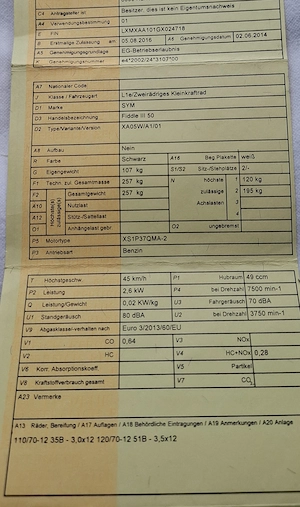 C4 Antragsteller ist Besitzer, dies ist kein Eigentumsnachweis
A4 Verwendungsbestimmung 01
E FIN LXMXAA101GX024718
B Erstmalige Zulassung am 05.08.2016 A6 Genehmigungsdatum 02.06.2014
A5 Genehmigungsgrundlage EG-Betriebserlaubnis
K Genehmigungsnummer e4*2002/24*3107*00
A7 Nationaler Code
J Klasse / Fahrzeugart L1e/Zweirädriges Kleinkraftrad
D1 Marke SYM
D3 Handelsbezeichnung Fiddle III 50
D2 Type/Variante/Version XA05W/A1/01
A8 Aufbau Nein
R Farbe Schwarz A16 Beg Plakette weiß
G Eigengewicht 107 kg S1/S2 Sitz-/Stehplätze 2/-
F1 Techn. zul. Gesamtmasse 257 kg N höchste 1 120 kg
F2 Höchste(s) zulässige(s) Gesamtgewicht 257 kg zulässige 2 195 kg
A10 Nutzlast Achslasten 3
A12 Stütz-/Sattellast 4
O1 Anhängelast gebr O2 ungebremst
P5 Motortype XS1P37QMA-2
P3 Antriebsart Benzin
T Höchstgeschw. 45 km/h P1 Hubraum 49 ccm
P2 Leistung 2,6 kW P4 bei Drehzahl 7500 min-1
Q Leistung/Gewicht 0,02 KW/kg U3 Fahrgeräusch 70 dBA
U1 Standgeräusch 80 dBA U2 bei Drehzahl 3750 min-1
V9 Abgasklasse/-verhalten nach Euro 3/2013/60/EU
V1 CO 0,64 V3 NOx
V2 HC V4 HC+NOx 0,28
V6 Korr. Absorptionskoeff. V5 Partikel
V8 Kraftstoffverbrauch gesamt V7 CO2
A23 Vermerke
A13 Räder, Bereifung / A17 Auflagen / A18 Behördliche Eintragungen / A19 Anmerkungen / A20 Anlage
110/70-12 35B - 3,0x12 120/70-12 51B - 3,5x12